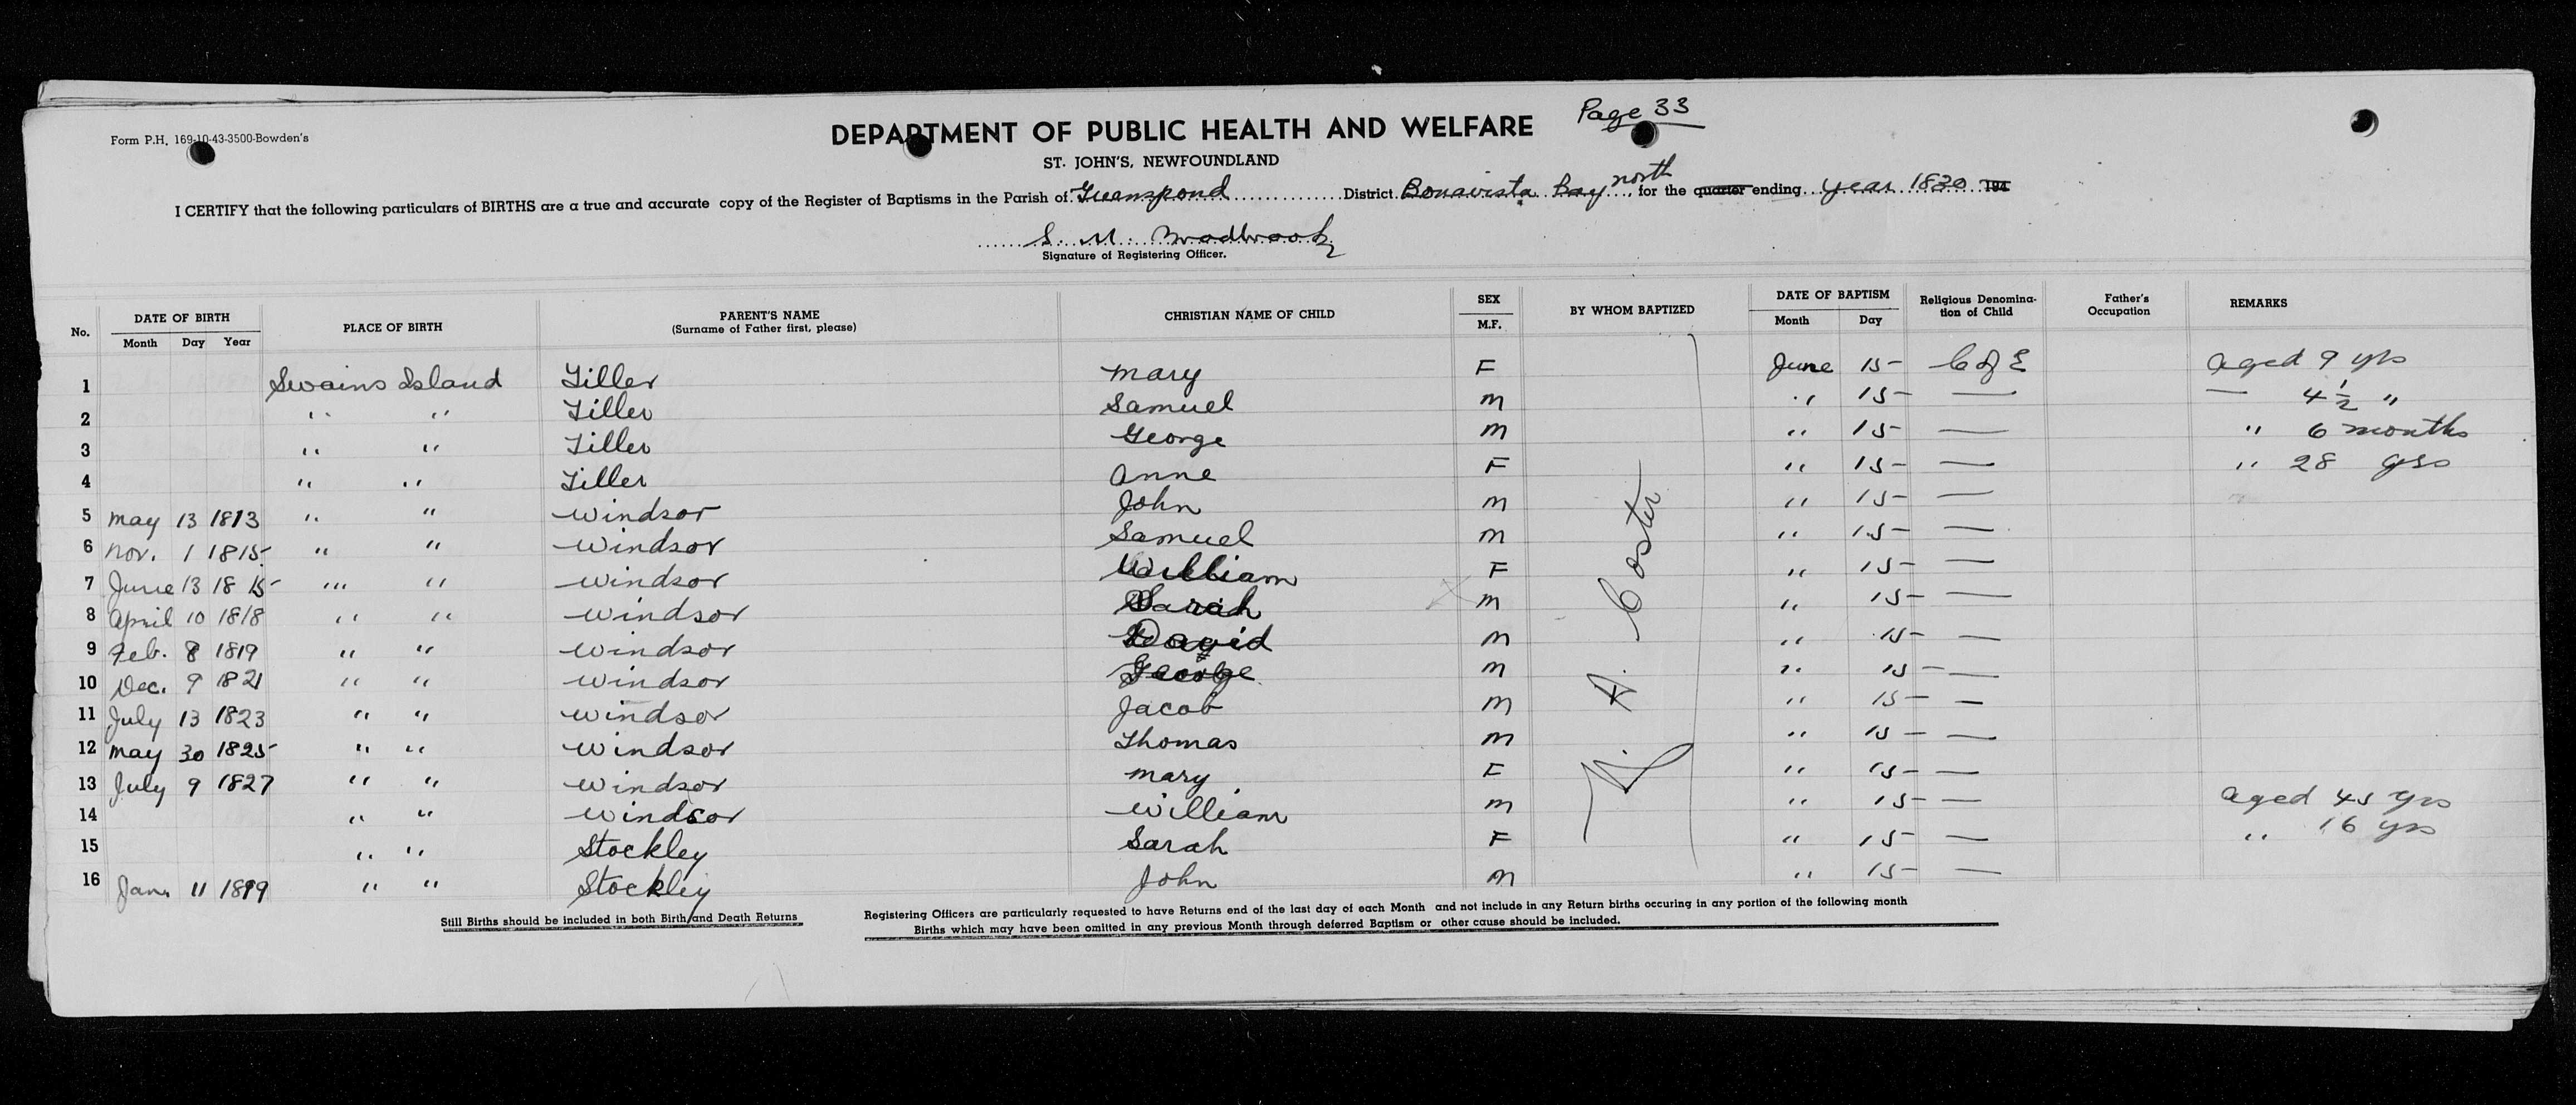 Page 33
Form P.H. 169-10-43-3500-Bowden's
DEPARTMENT OF PUBLIC HEALTH AND WELFARE
ST. JOHN'S, NEWFOUNDLAND
I CERTIFY that the following particulars of BIRTHS are a true and accurate copy of the Register of Baptisms in the Parish of Greenspond District Bonavista Bay north, for the quarter ending year 1830 194
S. M. Bradbrook
Signature of Registering Officer.
No. DATE OF BIRTH Month Day Year PLACE OF BIRTH PARENT'S NAME (Surname of Father first, please) CHRISTIAN NAME OF CHILD SEX M.F. BY WHOM BAPTIZED DATE OF BAPTISM Month Day Religious Denomination of Child Father's Occupation REMARKS
1 Swains Island Tiller Mary F June 15 C of E aged 9 yrs
2 " " Tiller Samuel M " 15 — — 4 1/2 "
3 " " Tiller George M " 15 — " 6 months
4 " " Tiller Anne F " 15 — " 28 yrs
5 May 13 1813 " " Windsor John M " 15 —
6 Nov. 1 1815 " " Windsor Samuel M " 15 —
7 June 13 1815 " " Windsor William F " 15 —
8 April 10 1818 " " Windsor Sarah M " 15 —
9 Feb. 8 1819 " " Windsor David M " 15 —
10 Dec. 9 1821 " " Windsor George M " 15 —
11 July 13 1823 " " Windsor Jacob M " 15 —
12 May 30 1825 " " Windsor Thomas M " 15 —
13 July 9 1827 " " Windsor Mary F " 15 —
14 " " Windsor William M " 15 — aged 45 yrs
15 " " Stockley Sarah F " 15 — " 16 yrs
16 Jan. 11 1819 " " Stockley John M " 15 —
N. A. Coster
Still Births should be included in both Birth and Death Returns
Registering Officers are particularly requested to have Returns end of the last day of each Month and not include in any Return births occuring in any portion of the following month
Births which may have been omitted in any previous Month through deferred Baptism or other cause should be included.